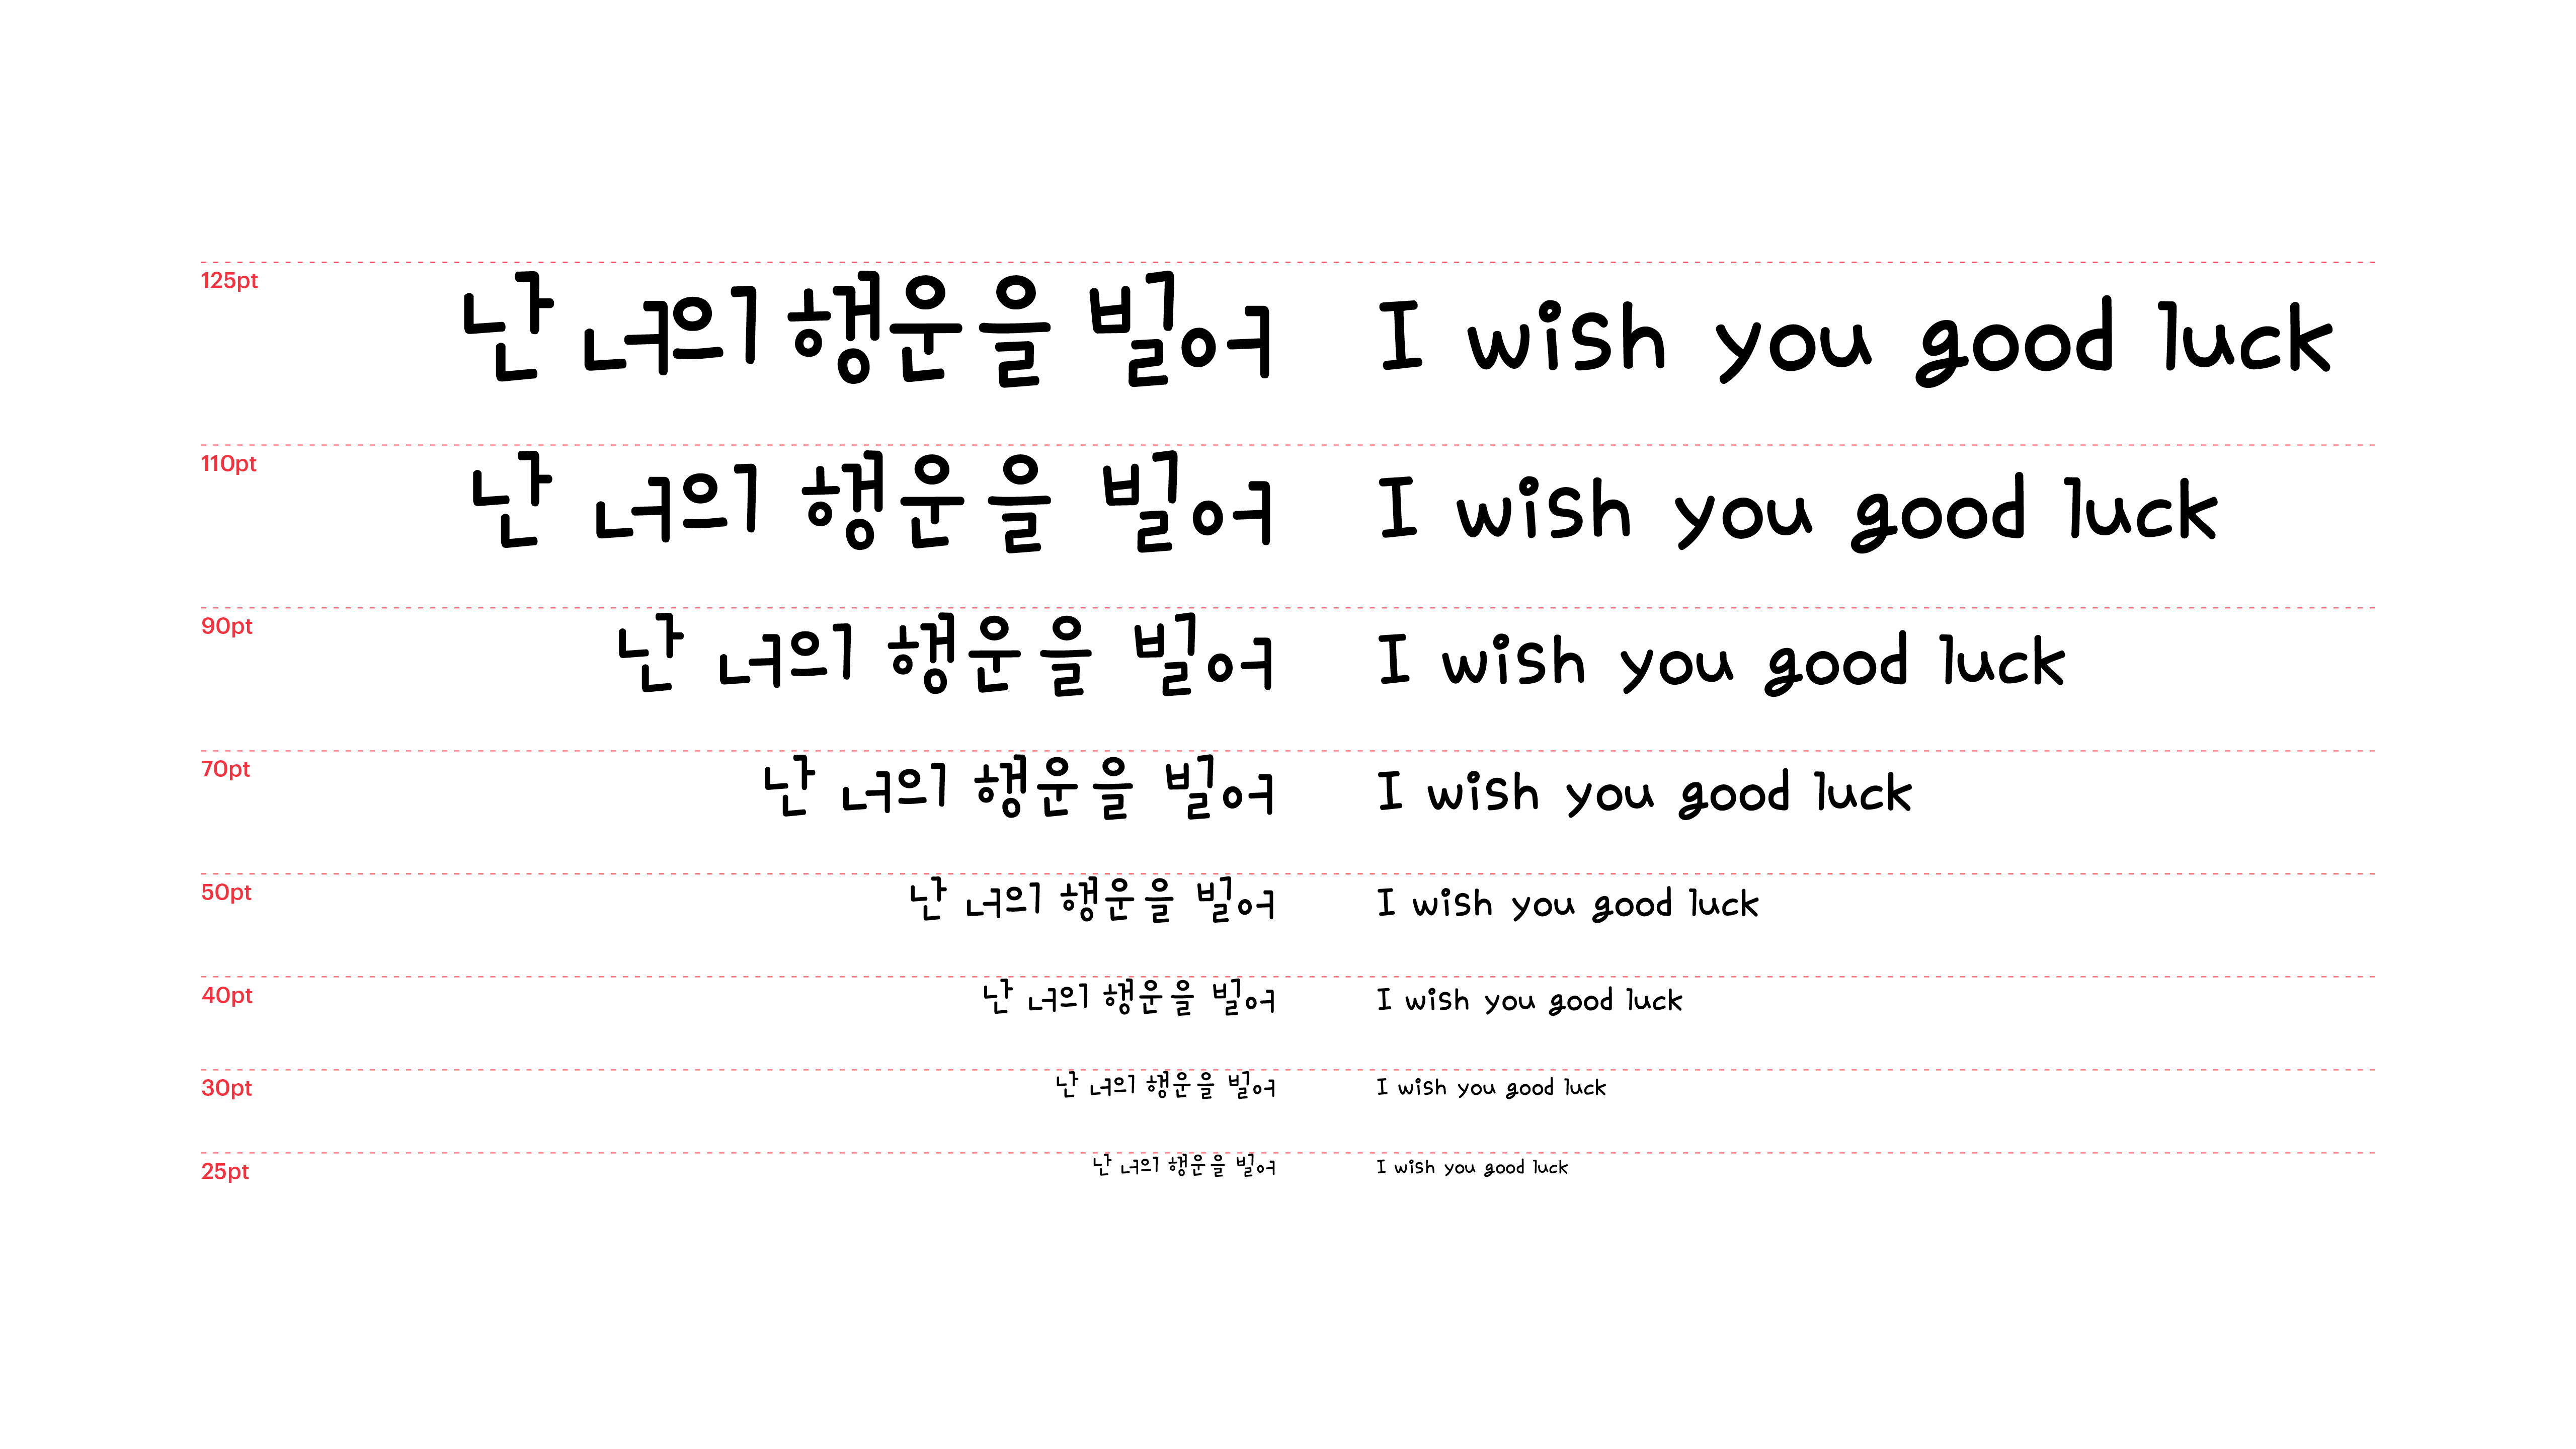 125pt 난 너의 행운을 빌어 I wish you good luck
110pt 난 너의 행운을 빌어 I wish you good luck
90pt 난 너의 행운을 빌어 I wish you good luck
70pt 난 너의 행운을 빌어 I wish you good luck
50pt 난 너의 행운을 빌어 I wish you good luck
40pt 난 너의 행운을 빌어 I wish you good luck
30pt 난 너의 행운을 빌어 I wish you good luck
25pt 난 너의 행운을 빌어 I wish you good luck